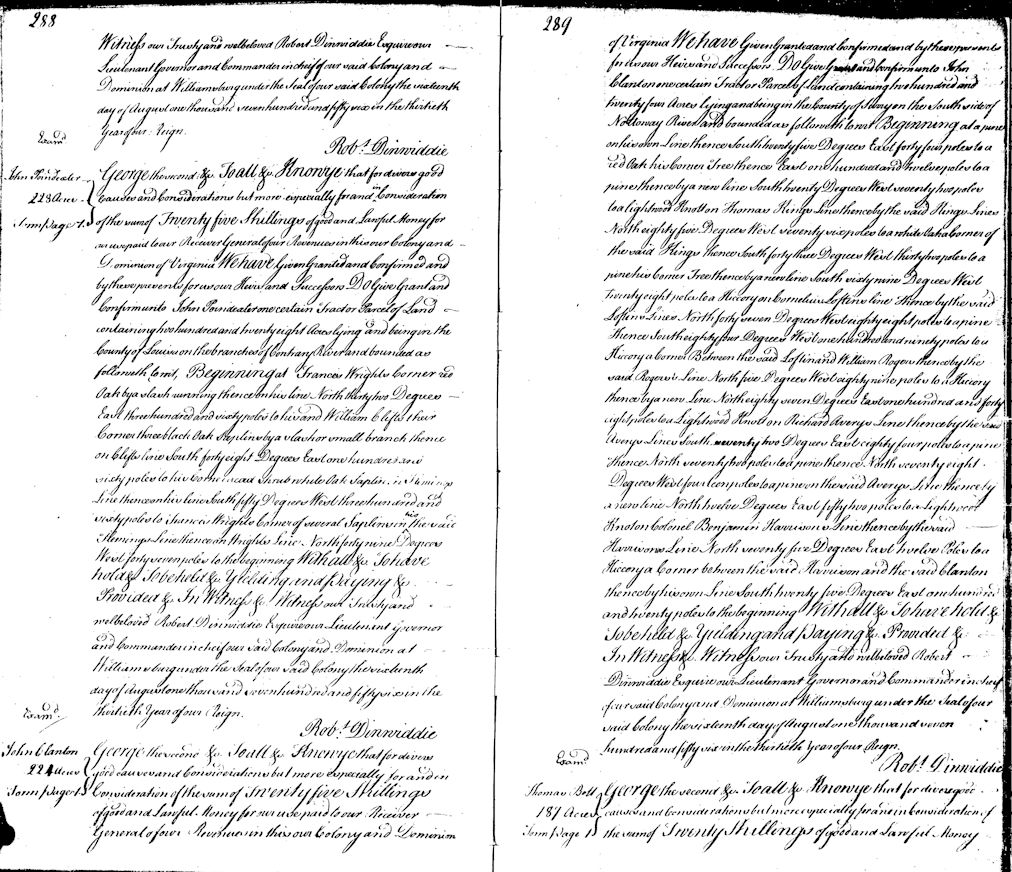 288
Witness our Trusty and welbeloved Robert Dinwiddie Esquire our
Lieutenant Governor and Commander in chief of our said Colony and
Dominion at Williamsburg under the Seal of our said Colony the sixteenth
day of August one thousand seven hundred and fifty six in the thirtieth
Year of our Reign.
Exam.d
Rob.t Dinwiddie
John Poindexter
228 Acres
George the second &c. To all &c. Know ye that for divers good
Causes and Considerations but more especially for and in Consideration
of the sum of Twenty five Shillings of good and Lawful Money for
our use paid to our Receiver General of our Revenues in this our Colony and
Dominion of Virginia We have Given Granted and Confirmed and
by these presents for us our Heirs and Successors Do Give Grant and
Confirm unto John Poindexter one certain Tract or Parcel of Land
containing two hundred and twenty eight Acres lying and being in the
County of Louisa on the branches of Contrary River and bounded as
followeth towit, Beginning at Francis Wrights Corner red
Oak by a slash running thence on his line North thirty two Degrees
East three hundred and sixty poles to his and William Clifts their
Corner three black Oak Saplins by a slash or small branch thence
on Clifts line South forty eight Degrees East one hundred and
sixty poles to his Corner Shrub white Oak Saplin in Flemings
Line thence on his line South fifty Degrees West three hundred and
sixty poles to Francis Wrights Corner of several Saplins in the said
Flemings Line thence on Wrights Line North forty nine Degrees
West forty seven poles to the beginning With all &c. To have
hold &c. To be held &c. Yielding and Paying &c.
Provided &c. In Witness &c. Witness our Trusty and
welbeloved Robert Dinwiddie Esquire our Lieutenant Governor
and Commander in chief our said Colony and Dominion at
Williamsburg under the Seal of our said Colony the sixteenth
day of August one thousand seven hundred and fifty six in the
thirtieth Year of our Reign.
Exam.d
Rob.t Dinwiddie
John Clanton
224 Acres
George the second &c. To all &c. Know ye that for divers
good causes and Considerations but more especially for and in
Consideration of the sum of Twenty five Shillings
of good and Lawful Money for our use paid to our Receiver
General of our Revenues in this our Colony and Dominion
289
of Virginia We have Given Granted and Confirmed and by these presents
for us our Heirs and Successors Do Give and confirm unto John
Clanton one certain Tract or Parcel of Land containing two hundred and
twenty four Acres lying and being in the County of Surry on the South side of
Nottoway River and bounded as followeth towit Beginning at a pine
on his own Line thence South twenty five Degrees East forty four poles to a
red Oak his Corner Tree thence East one hundred and twelve poles to a
pine thence by a new line South twenty Degrees West seventy two poles
to a lightwood Knott on Thomas Kings Line thence by the said Kings Lines
North eighty five Degrees West seventy six poles to a white Oak a Corner of
the said Kings thence South forty three Degrees West thirty two poles to a
pine his Corner Tree thence by a new line South sixty nine Degrees West
Twenty eight poles to a Hiccory on Cornelius Loftens line thence by the said
Loftens Lines North forty seven Degrees West eighty eight poles to a pine
thence South eighty four Degrees West one hundred and ninety poles to a
Hiccory a Corner Between the said Loftin and William Rogers thence by the
said Rogers's Line North five Degrees West eighty nine poles to a Hiccory
thence by a new Line North eighty seven Degrees East one hundred and forty
eight poles to a Lightwood Knott on Richard Averys Line thence by the said
Averys Lines South seventy two Degrees East eighty four poles to a pine
thence North seventy two poles to a pine thence North seventy eight
Degrees West fourteen poles to a pine on the said Averys Line thence by
a new line North twelve Degrees East fifty two poles to a Lightwood
Knot on Colonel Benjamin Harrisons Line thence by the said
Harrisons Line North seventy five Degrees East twelve Poles to a
Hiccory a Corner between the said Harrison and the said Clanton
thence by his own Line South twenty five Degrees East one hundred
and twenty poles to the beginning With all &c. To have hold &c.
To be held &c. Yielding and Paying &c. Provided &c.
In Witness &c. Witness our Trusty and welbeloved Robert
Dinwiddie Esquire our Lieutenant Governor and Commander in chief
of our said Colony and Dominion at Williamsburg under the Seal of our
said Colony the sixteenth day of August one thousand seven
hundred and fifty six in the thirtieth Year of our Reign.
Exam.d
Rob.t Dinwiddie
Thomas Bell
181 Acres
George the second &c. To all &c. Know ye that for divers good
causes and Considerations but more especially for and in Consideration of
the sum of Twenty Shillings of good and Lawful Money